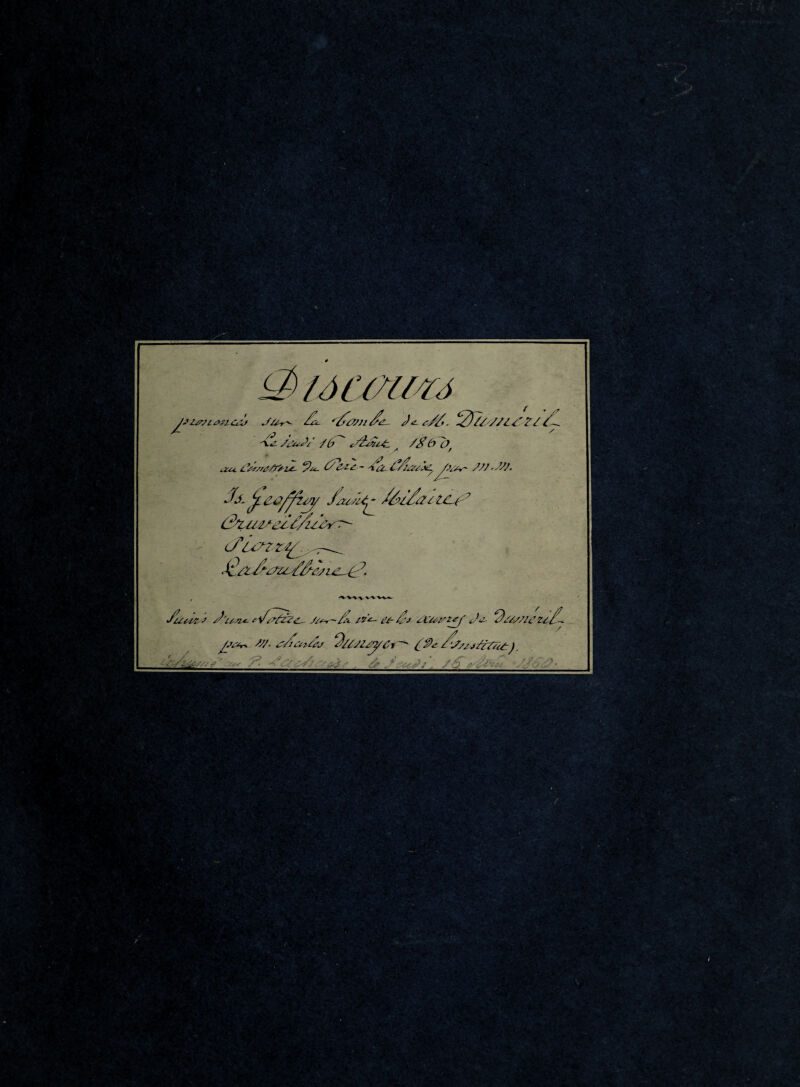 Discours
prononcés sur la tombe de M. Duméril
le jeudi 16 Août 1860,
au Cimetière du Père-la Chaise, par MM.
Is. Geoffroy Saint-Hilaire
Cruveilhier
Piorry
Laboulbène.
Suivis d'une Notice sur la vie et les œuvres de Duméril
par M. Charles Dunoyer (de l'Institut).
le Jeudi, 16 Août 1860.